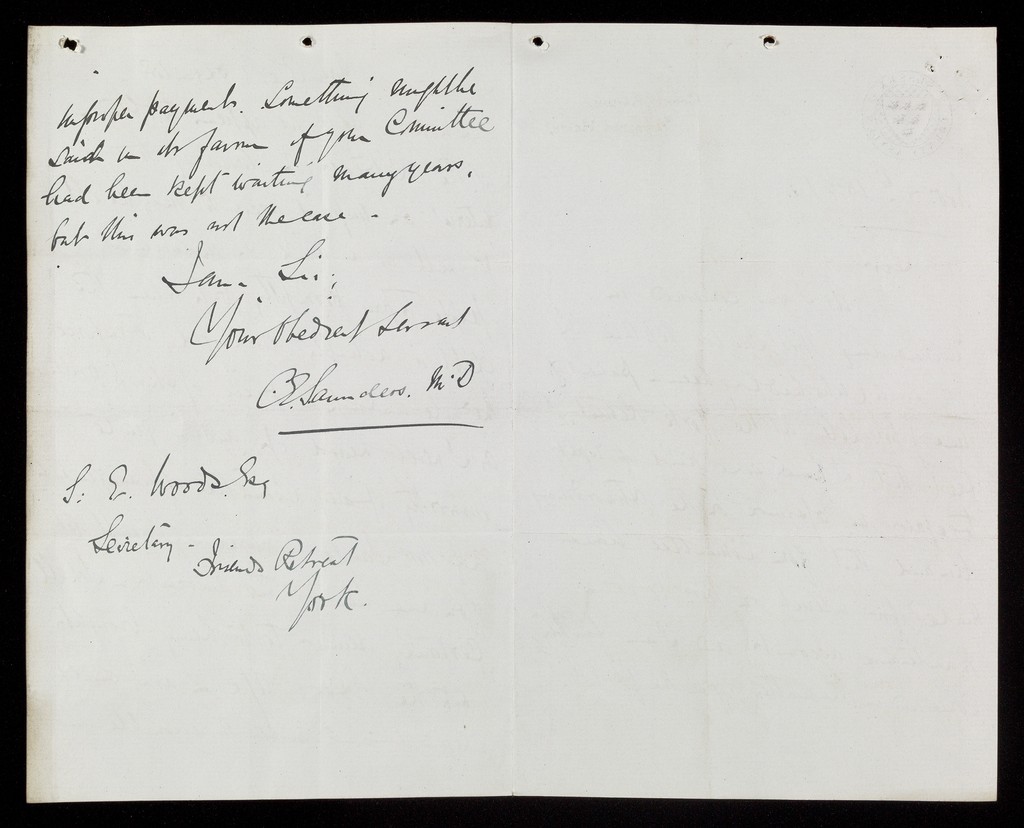 improper payment. Something might be
said in its favour if your Committee
had been kept waiting many years,
but this was not the case -
I am Sir,
Your Obedient Servant
C.E. Saunders. M.D
S. E. Woods. Esq
Secretary -
Friends Retreat
York.